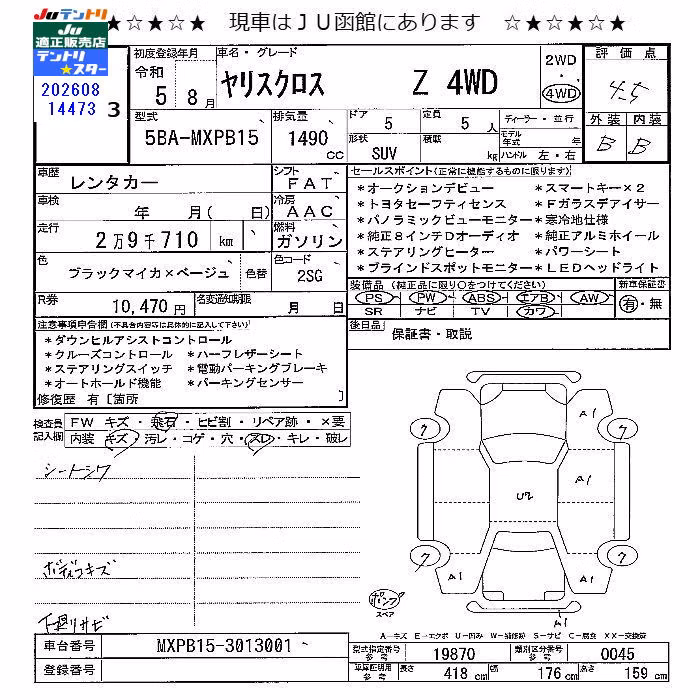 JUテントリ
JU
適正販売店
テントリ
★スター
★☆★☆★ 現車はJU函館にあります ☆★☆★☆★
202608
14473 3
初度登録年月
令和
5 8月
車名・グレード
ヤリスクロス Z 4WD
2WD
・
4WD
評価点
4.5
外装 内装
B B
型式
5BA-MXPB15
排気量
1490
cc
ドア
5
定員
5人
形状
SUV
積載
kg
ディーラー・並行
モデル年式 年
ハンドル 左・右
車歴
レンタカー
シフト
FAT
車検
年 月( 日)
冷房
AAC
走行
2万9千710 km
燃料
ガソリン
色
ブラックマイカ×ベージュ
色替
色コード
2SG
R券
10,470円
名変通知期限
月 日
セールスポイント(正常に機能するものに限ります)
*オークションデビュー *スマートキー×2
*トヨタセーフティセンス *Fガラスデアイサー
*パノラミックビューモニター *寒冷地仕様
*純正8インチDオーディオ *純正アルミホイール
*ステアリングヒーター *パワーシート
*ブラインドスポットモニター *LEDヘッドライト
装備品 (純正品に限り○をつけてください)
PS PW ABS エアB AW
SR ナビ TV カワ
新車保証書
有・無
後日品
保証書・取説
注意事項申告欄(不具合内容等は具体的に記入して下さい)
*ダウンヒルアシストコントロール
*クルーズコントロール *ハーフレザーシート
*ステアリングスイッチ *電動パーキングブレーキ
*オートホールド機能 *パーキングセンサー
修復歴 有[箇所 ]
検査員
記入欄
FW キズ・飛石・ヒビ割・リペア跡・×要
内装 キズ・汚レ・コゲ・穴・スレ・キレ・破レ
シートシワ
ボディコキズ
下廻りサビ
A1
A1
U2
A1
A1
A1
7
7
7
7
パンク
スペア
A-キズ E-エクボ U-凹み W-補修跡 S-サビ C-腐食 XX-交換済
車台番号
MXPB15-3013001
登録番号
型式指定番号
参考
19870
類別区分番号
参考
0045
車庫証明用
参考
長さ
418 cm
幅
176 cm
高さ
159 cm